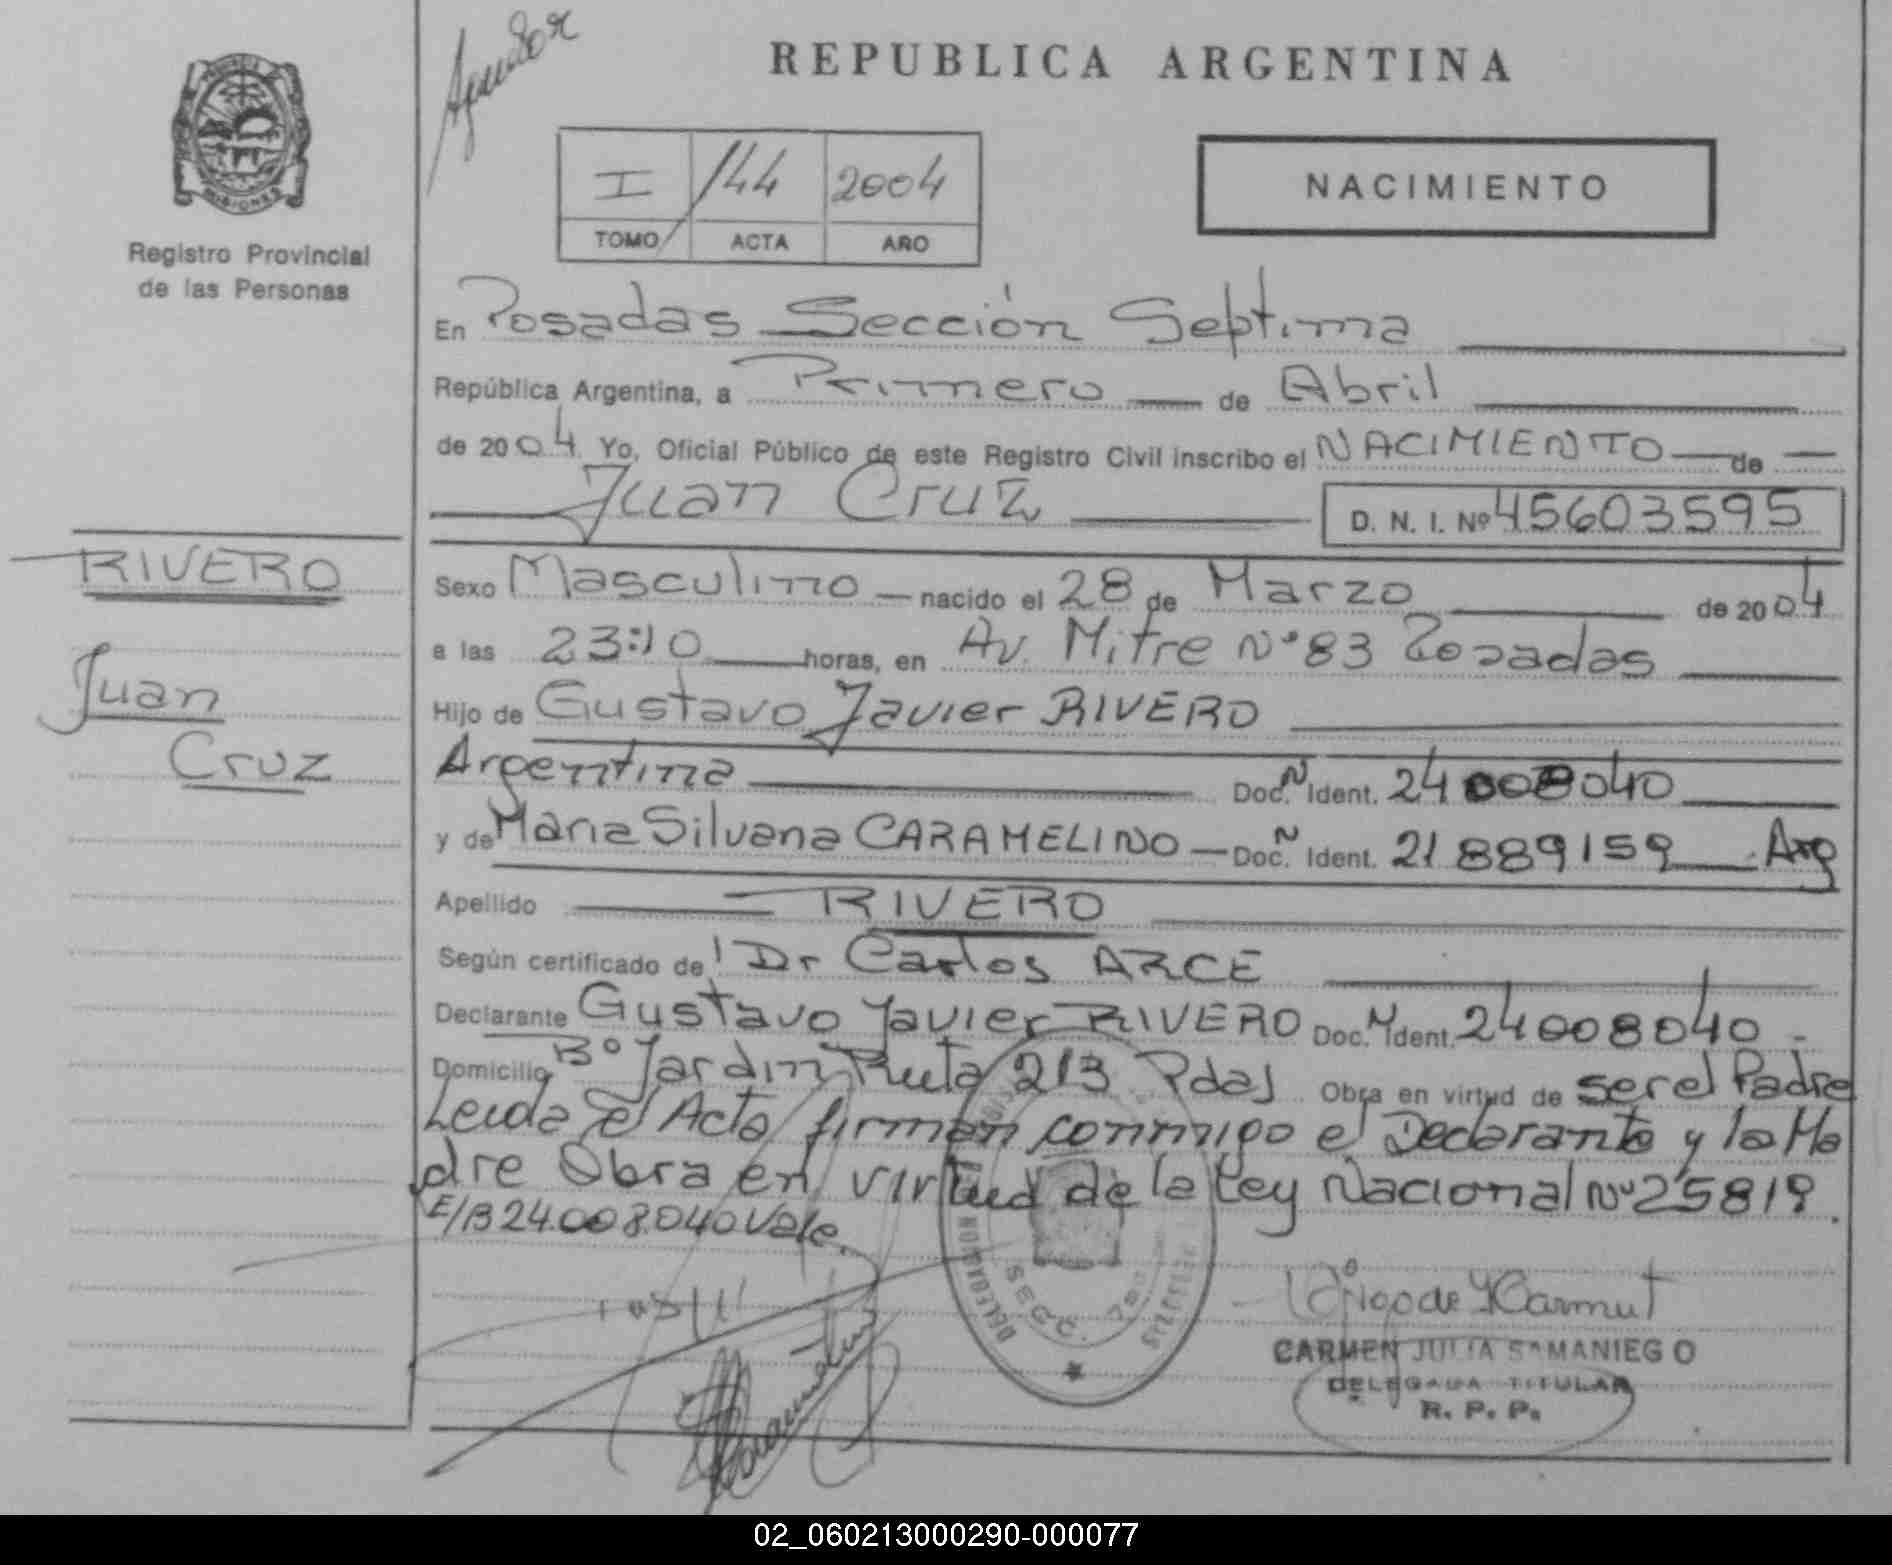 REPUBLICA ARGENTINA
MISIONES
Registro Provincial
de las Personas
I 144 2004
TOMO ACTA AÑO
NACIMIENTO
En Posadas Sección Septima
República Argentina, a Primero de Abril
de 2004 Yo, Oficial Público de este Registro Civil inscribo el NACIMIENTO de
Juan Cruz D. N. I. Nº 45603595
RIVERO
Juan
Cruz
Sexo Masculino nacido el 28 de Marzo de 2004
a las 23:10 horas, en Av. Mitre Nº 83 Posadas
Hijo de Gustavo Javier RIVERO
Argentina Doc. N Ident. 24008040
y de Maria Silvana CARAMELINO Doc. N Ident. 21889159 Arg
Apellido RIVERO
Según certificado de Dr Carlos ARCE
Declarante Gustavo Javier RIVERO Doc. N Ident. 24008040
Domicilio Bº Jardin Ruta 213 Pdas Obra en virtud de ser el Padre
Leida el Acta firman conmigo el Declarante y la Ma
dre Obra en virtud de la Ley Nacional Nº 25819.
E/B 24.008.040 Vale.
CARMEN JULIA SAMANIEGO
DELEGADA TITULAR
R. P. P.
02_060213000290-000077